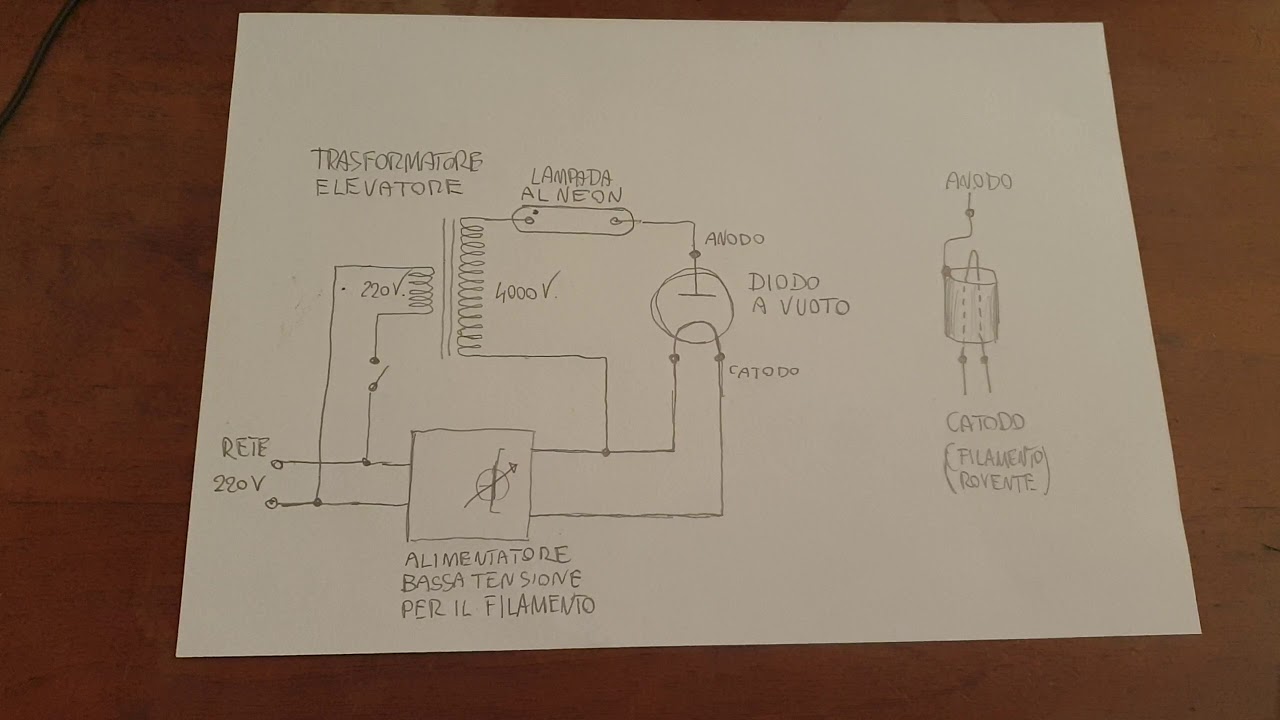 TRASFORMATORE
ELEVATORE
LAMPADA
AL NEON
ANODO
220V.
4000V.
DIODO
A VUOTO
CATODO
RETE
220V
ALIMENTATORE
BASSA TENSIONE
PER IL FILAMENTO
ANODO
CATODO
(FILAMENTO
ROVENTE)